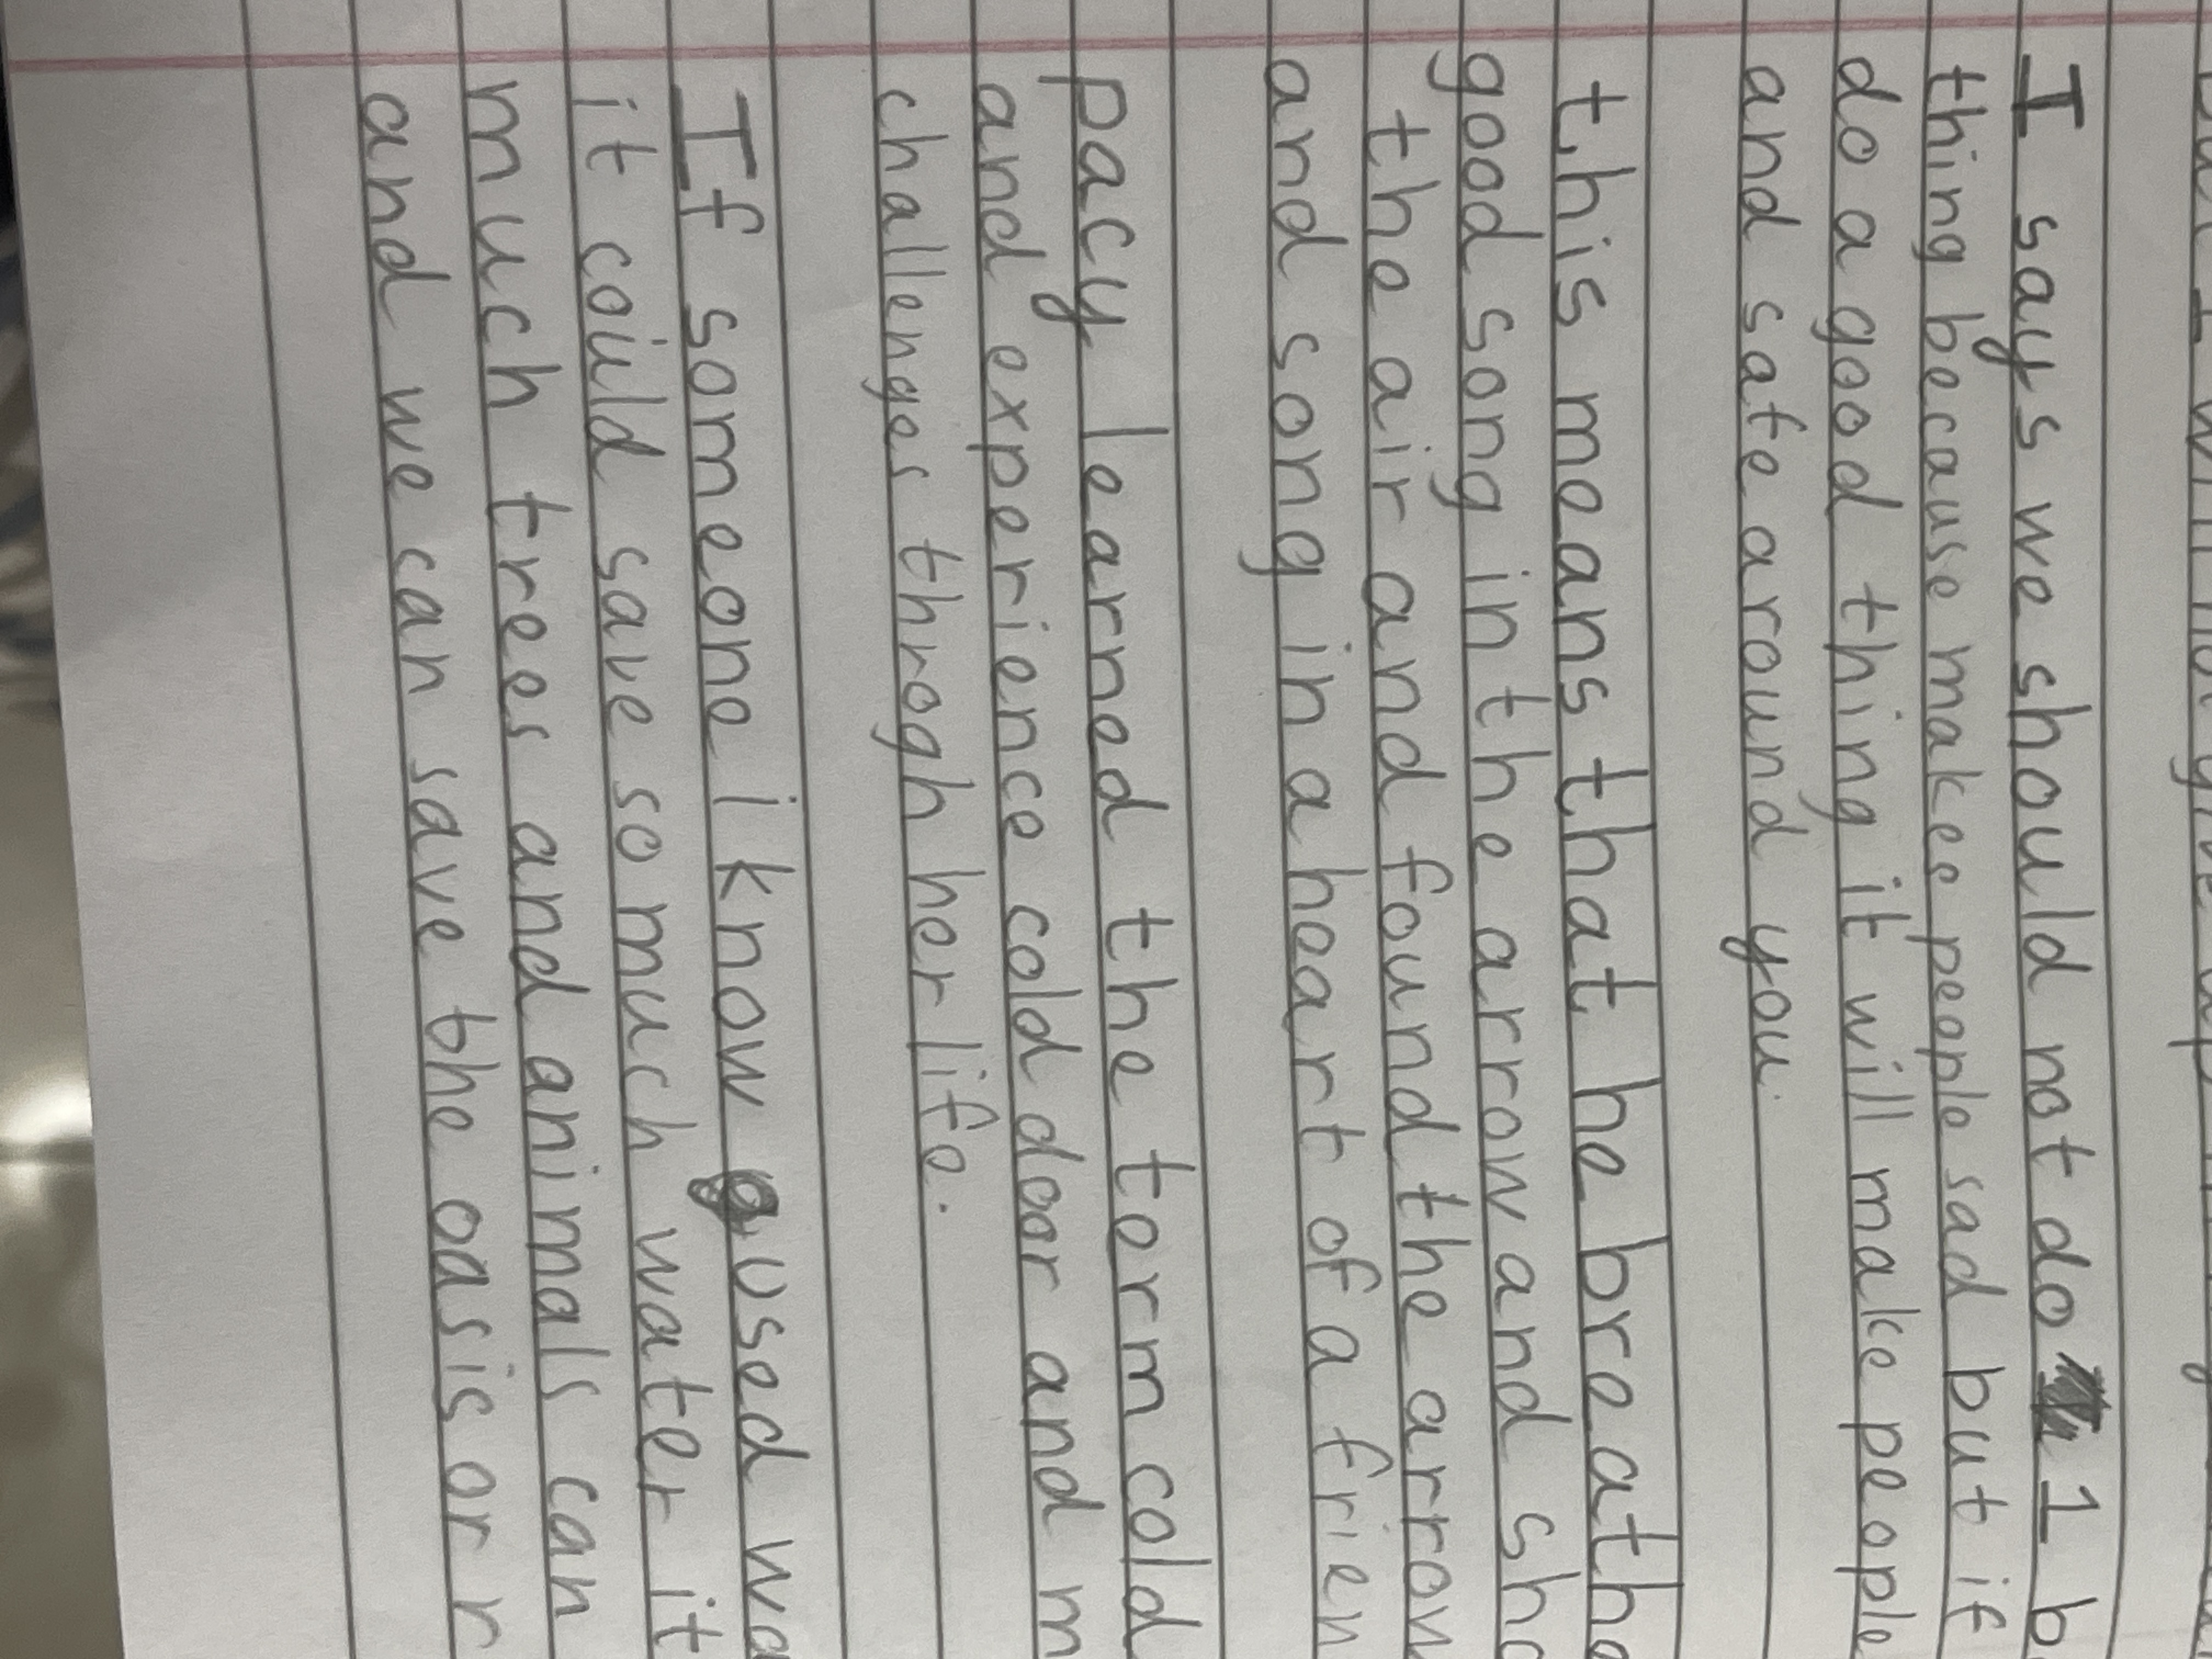 I says we should not do 1
thing because makes people sad but if
do a good thing it will make people
and sate around you.
this means that he breath
good song in the arrow and
the air and found the arrow
and song in a heart of a
pacy learned the term cold
and experience cold door and
challenges throgh her life.
If someone i know used
it could save so much water it
much trees and animals can
and we can save the oasis or